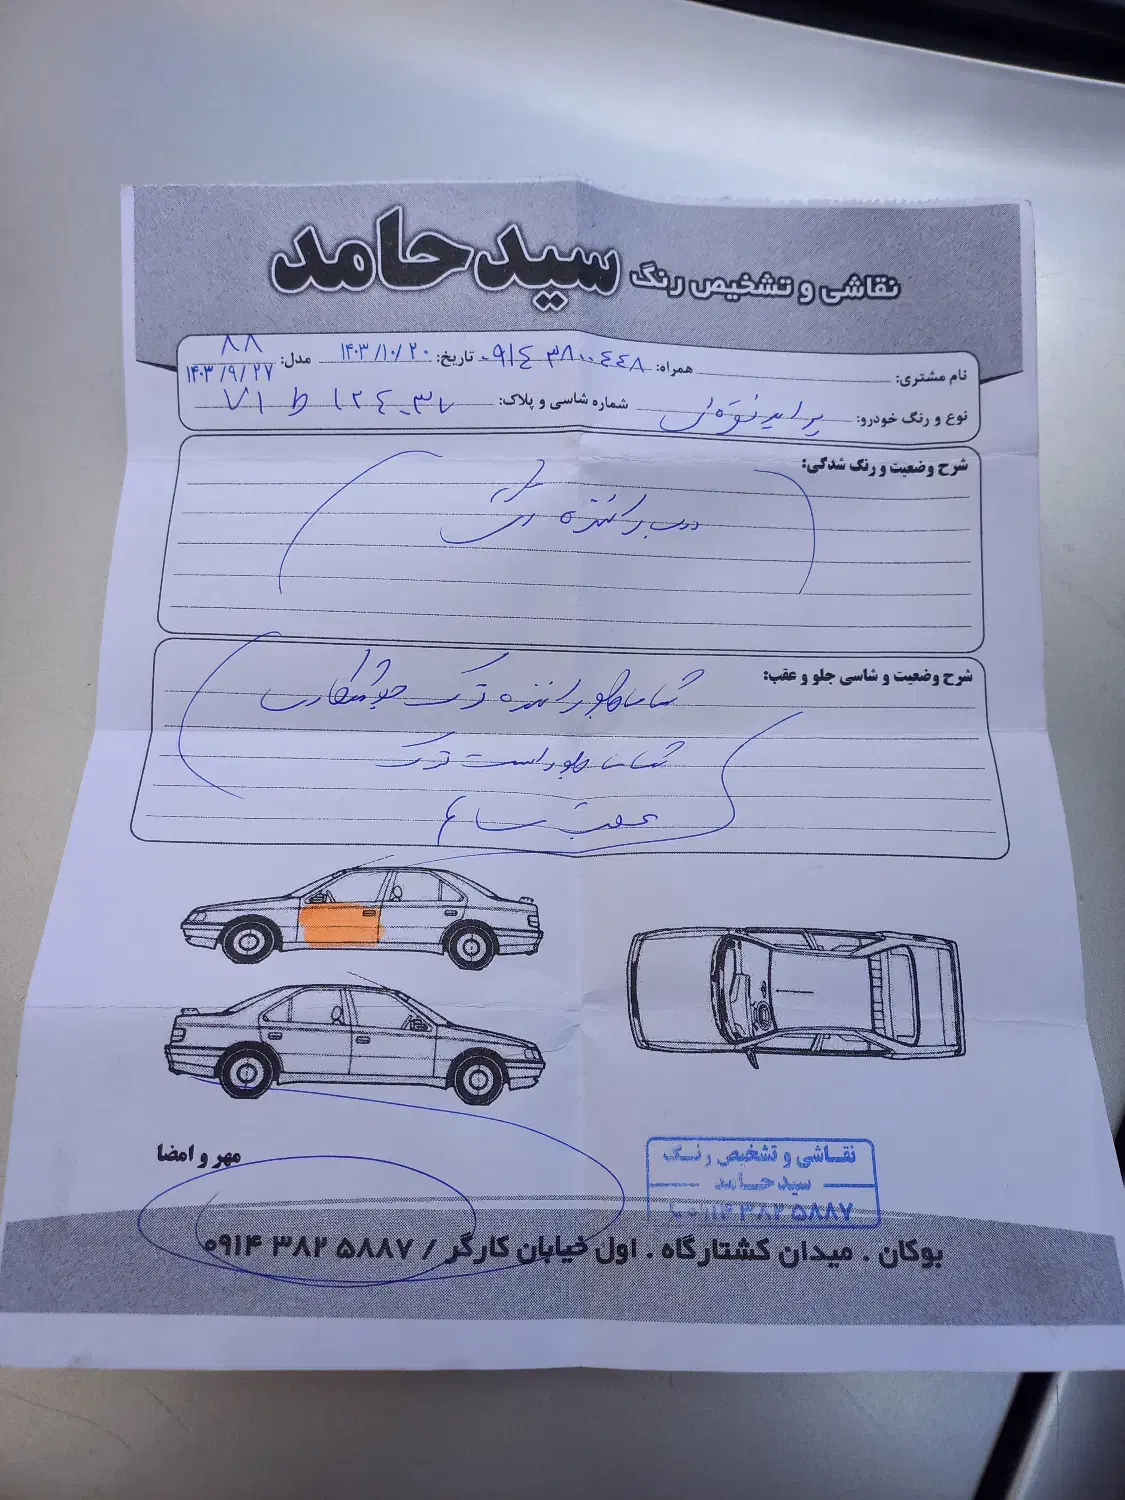 نقاشی و تشخیص رنگ سید حامد
نام مشتری: همراه: ۰۹۱۴ ۳۸۰۰۴۴۸ تاریخ: ۱۴۰۳/۱۰/۲۰ مدل: ۸۸
۱۴۰۳/۹/۲۷
نوع و رنگ خودرو: پراید نقره‌ئی شماره شاسی و پلاک:
شرح وضعیت و رنگ شدگی:
درب راننده رنگ
شرح وضعیت و شاسی جلو و عقب:
شاسی جلو راننده ترک جوشکاری
شاسی جلو راست ترک
عقب سالم
مهر و امضا
نقاشی و تشخیص رنگ
سید حامد
بوکان . میدان کشتارگاه . اول خیابان کارگر / ۰۹۱۴ ۳۸۲ ۵۸۸۷